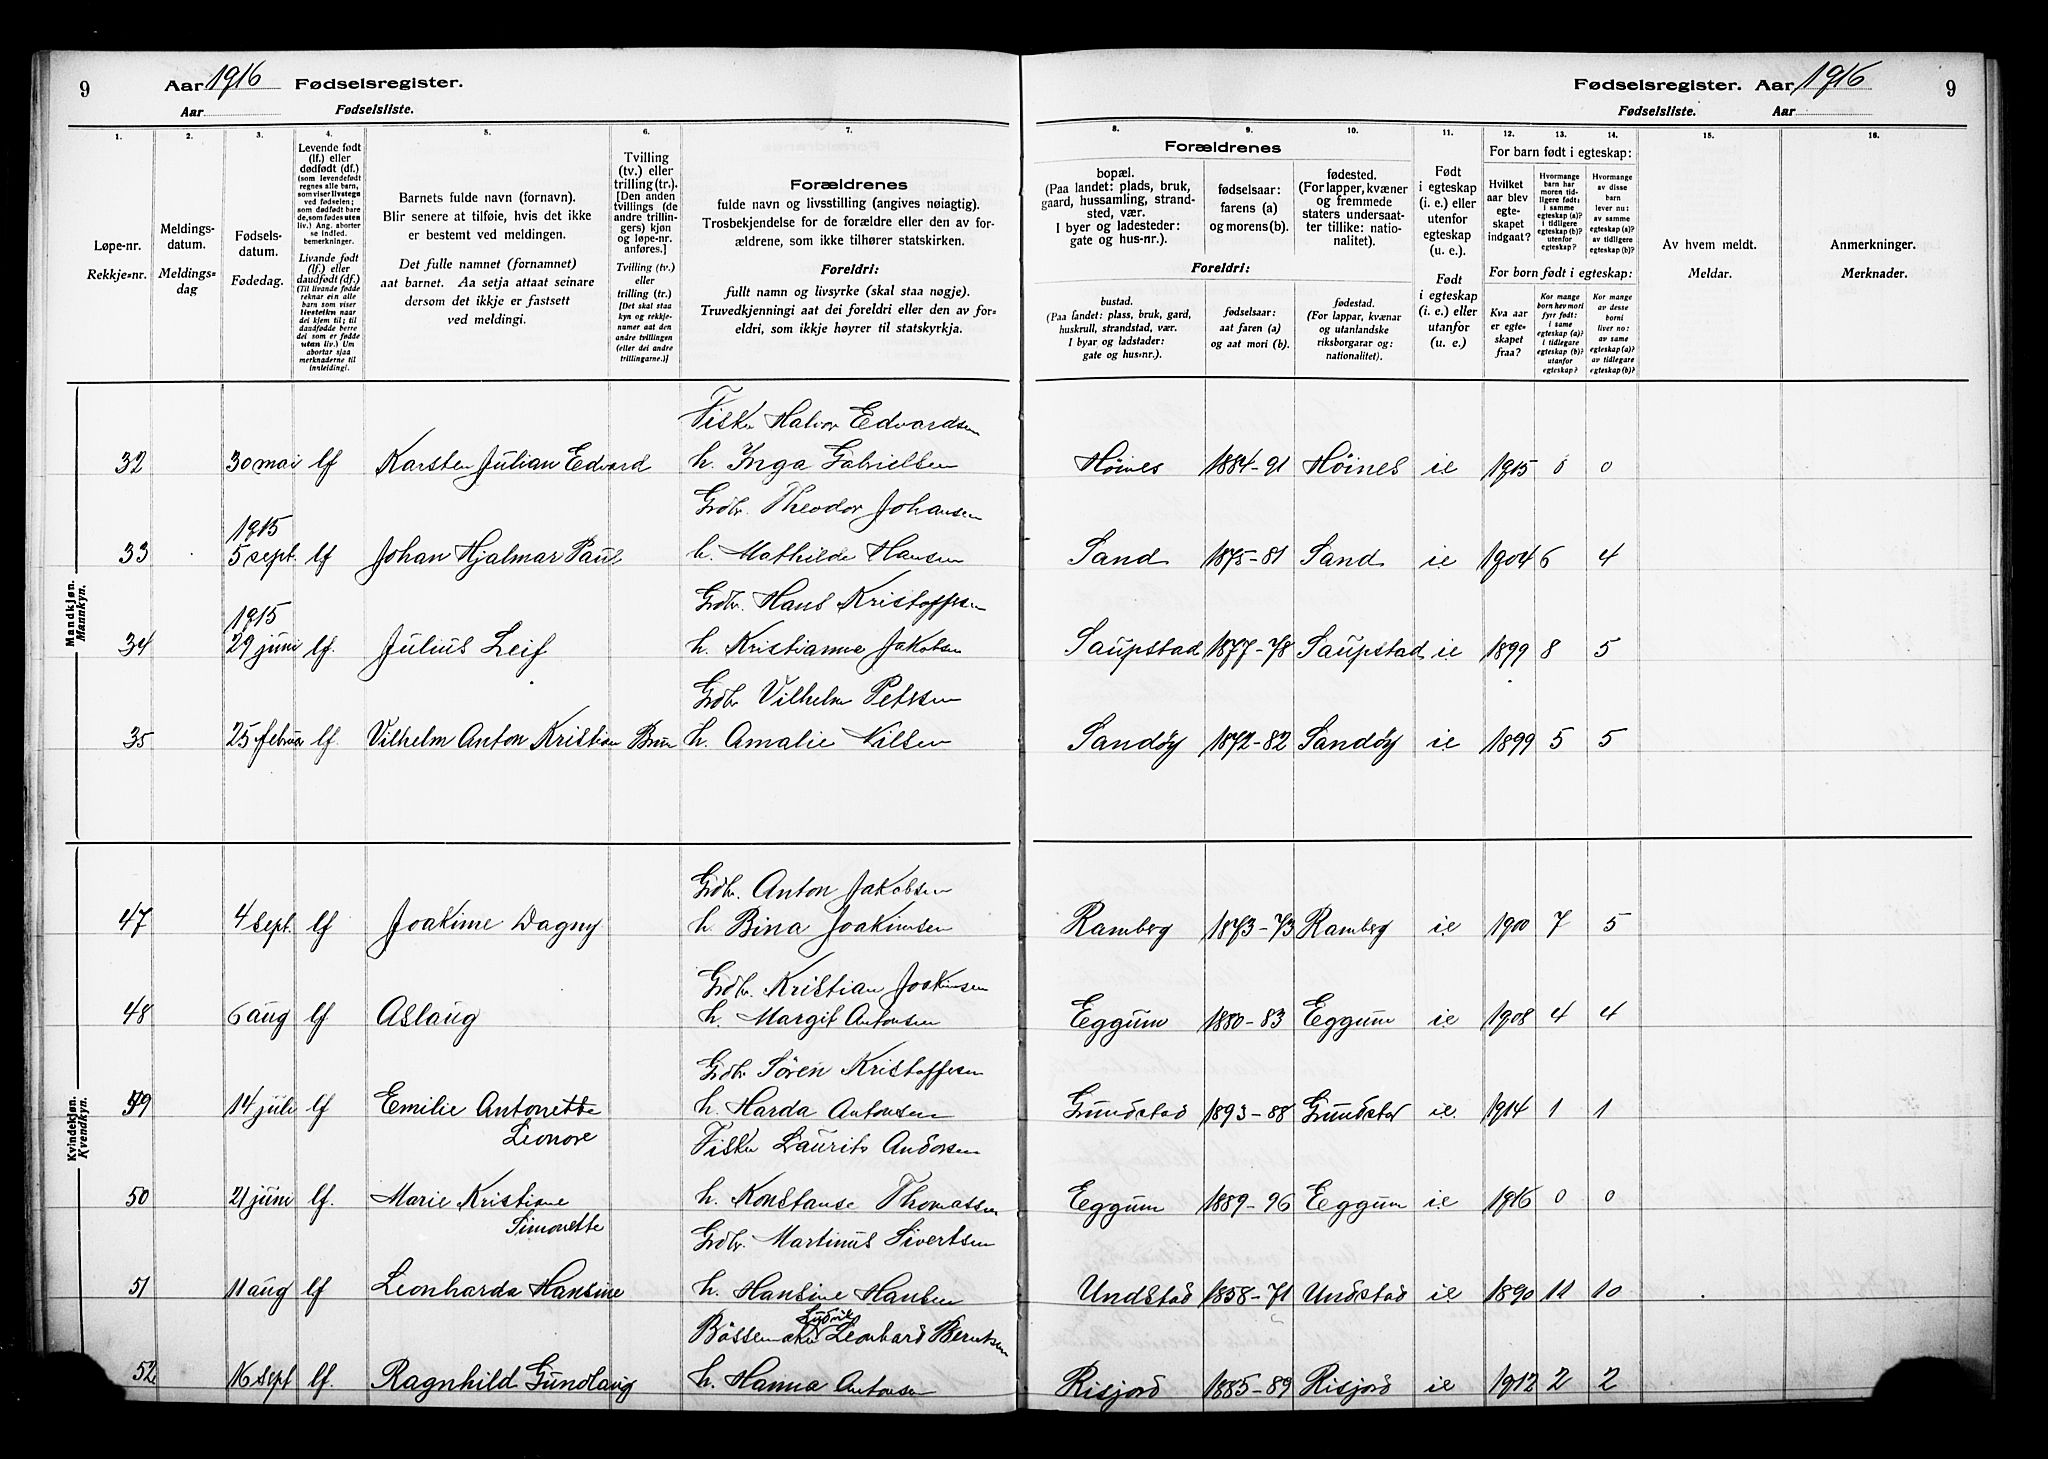 9 Aar 1916 Fødselsregister.
Aar Fødselsliste.
Fødselsregister. Aar 1916 9
Fødselsliste. Aar
1. 2. 3. 4. 5. 6. 7. 8. 9. 10. 11. 12. 13. 14. 15. 16.
Løpe-nr.
Rekkje-nr.
Meldings-
datum.
Meldings-
dag
Fødsels-
datum.
Fødedag.
Levende født
(lf.) eller
dødfødt (df.)
(som levendefødt
regnes alle barn,
som viser livstegn
ved fødselen;
som dødfødt bare
de, som fødes uten
liv.) Ang. aborter
se indled.
bemerkninger.
Livande født
(lf.) eller
daudfødt (df.)
(Til livande fødde
reknar ein alle
barn som viser
livsteikn naar
dei kjem til; til
daudfødde berre
dei som er fødde
utan liv.) Um
abortar sjaa
merknaderne til
innleiding).
Barnets fulde navn (fornavn).
Blir senere at tilføie, hvis det ikke
er bestemt ved meldingen.
Det fulle namnet (fornamnet)
aat barnet. Aa setja attaat seinare
dersom det ikkje er fastsett
ved meldingi.
Tvilling
(tv.) eller
trilling (tr.).
[Den anden
tvillings (de
andre trillin-
gers) kjøn
og løpe-nr.
anføres.]
Tvilling (tv.)
eller
trilling (tr.)
[Det skal staa
kyn og rekkje-
numer aat den
andre tvillingen
(eller dei andre
trillingarne.)]
Forældrenes
fulde navn og livsstilling (angives nøiagtig).
Trosbekjendelse for de forældre eller den av for-
ældrene, som ikke tilhører statskirken.
Foreldri:
fullt namn og livsyrke (skal staa nøgje).
Truvedkjenningi aat dei foreldri eller den av for-
eldri, som ikkje høyrer til statskyrkja.
Forældrenes
bopæl.
(Paa landet: plads, bruk,
gaard, hussamling, strand-
sted, vær.
I byer og ladesteder:
gate og hus-nr.).
fødselsaar:
farens (a)
og morens (b).
fødested.
(For lapper, kvæner
og fremmede
staters undersaat-
ter tillike: natio-
nalitet).
Foreldri:
bustad.
(Paa landet: plass, bruk, gard,
huskrull, strandstad, vær.
I byar og ladstader:
gate og hus-nr.).
fødselsaar:
aat faren (a)
og aat mori (b).
fødestad.
(For lappar, kvænar
og utanlandske
riksborgarar og:
nationalitet).
Født
i egteskap
(i. e.) eller
utenfor
egteskap
(u. e.).
Født
i egteskap
(i. e.) eller
utanfor
(u. e.)
For barn født i egteskap:
Hvilket
aar blev
egte-
skapet
indgaat?
Hvormange
barn har
moren tid-
ligere født:
i samme
egteskap (a)?
i tidligere
egteskap (b)?
utenfor
egteskap?
Hvormange
av disse
barn
lever nu:
av samme
egteskap (a)?
av tidligere
egteskap (b)?
For born født i egteskap:
Kva aar
er egte-
skapet
fraa?
Kor mange
born hev mori
fyrr født:
i same
egteskap (a)?
i tidlegare
egteskap (b)?
utanfor
egteskap?
Kor mange
av desse
borni
liver no:
av same
egteskap (a)?
av tidlegare
egteskap (b)?
Av hvem meldt.
Meldar.
Anmerkninger.
Merknader.
Mandkjøn.
Mannkyn.
Fisker Halvor Edvardsen
32 30 mai lf Karsten Julian Edvard h. Inga Gabrielsen Höines 1884-91 Höines i.e 1915 0 0
Grdbr. Theodor Johansen
1915
33 5 sept. lf Johan Hjalmar Paul h. Mathilde Hansen Sand 1875-81 Sand i.e 1904 6 4
Grdbr. Hans Kristoffersen
1915
34 29 juni lf. Julius Leif h. Kristianne Jakobsen Saupstad 1877-78 Saupstad i.e 1899 8 5
Grdbr Vilhelm Petersen
35 25 februar lf. Vilhelm Anton Kristian Brun h. Amalie Nilsen Sandöy 1872-82 Sandöy i.e 1899 5 5
Kvindekjøn.
Kvendkyn.
Grdbr. Anton Jakobsen
47 4 sept. lf Joakime Dagny h. Bina Joakimsen Ramberg 1873-73 Ramberg i.e 1900 7 5
Grdbr. Kristian Joakimsen
48 6 aug lf Aslaug h. Margit Antonsen Eggum 1880-83 Eggum i.e 1908 4 4
Grdbr Sören Kristoffersen
49 14 juli lf Emilie Antonette h. Harda Antonsen Grundstad 1893-88 Grundstad i.e 1914 1 1
Leonore Fisker Laurits Andorsen
50 21 juni lf. Marie Kristiane h. Konstanse Thomassen Eggum 1889-96 Eggum i.e 1916 0 0
Simonette Grdbr. Martinus Sivertsen
51 11 aug lf Leonharda Hansine h. Hansine Hansen Undstad 1858-71 Undstad i.e 1890 11 10
Ludvik
Bössemaker Leonhard Berntsen
52 16 sept lf. Ragnhild Gundlaug h. Hanna Antonsen Risjord 1885-89 Risjord i.e 1912 2 2